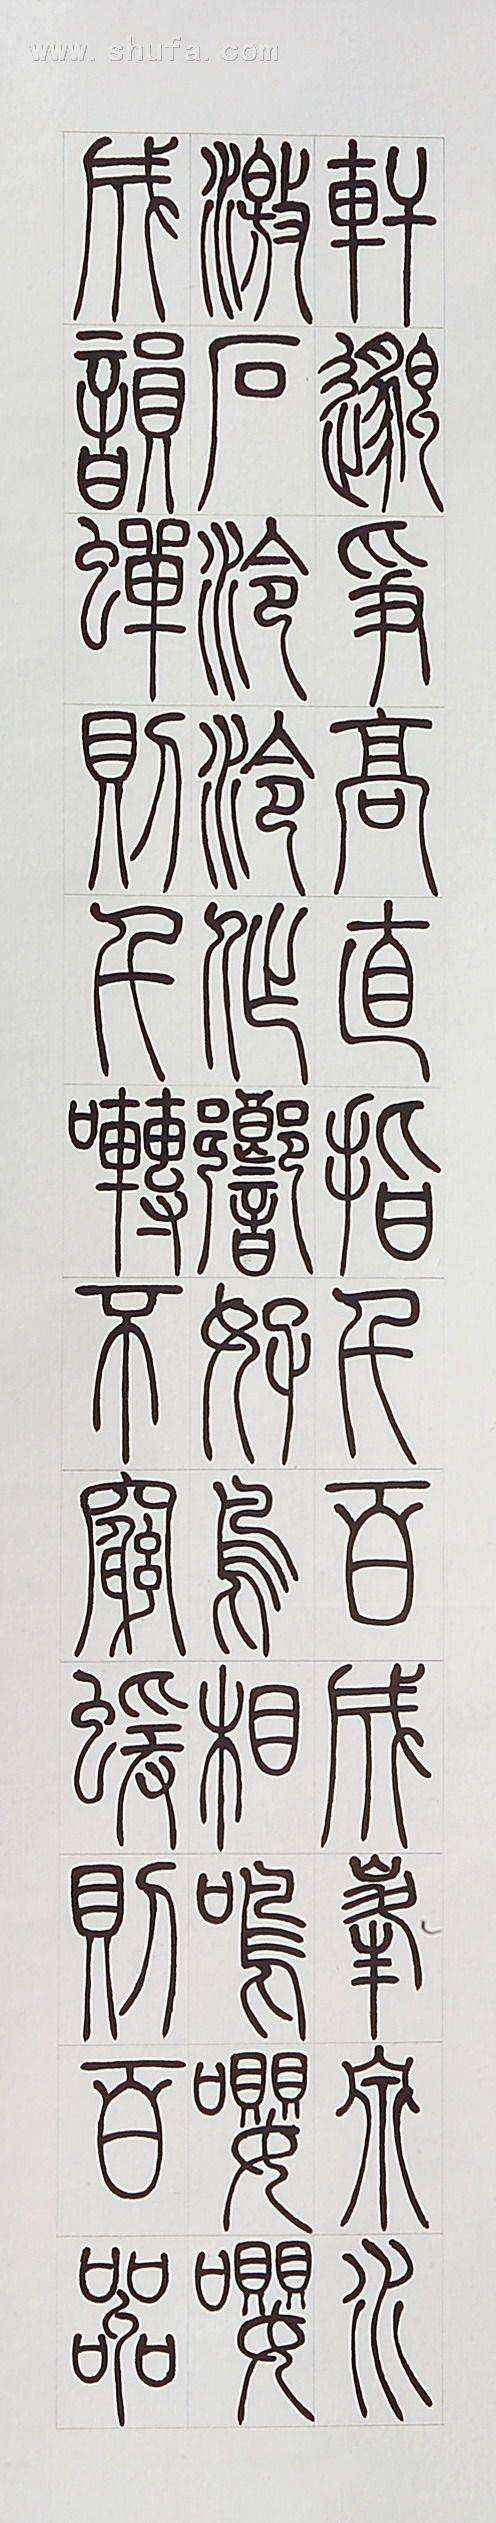 www.shufa.com
軒邈爭高直指千百成峯泉水
激石泠泠作響好鳥相鳴嚶嚶
成韻蟬則千囀不窮猨則百嘂